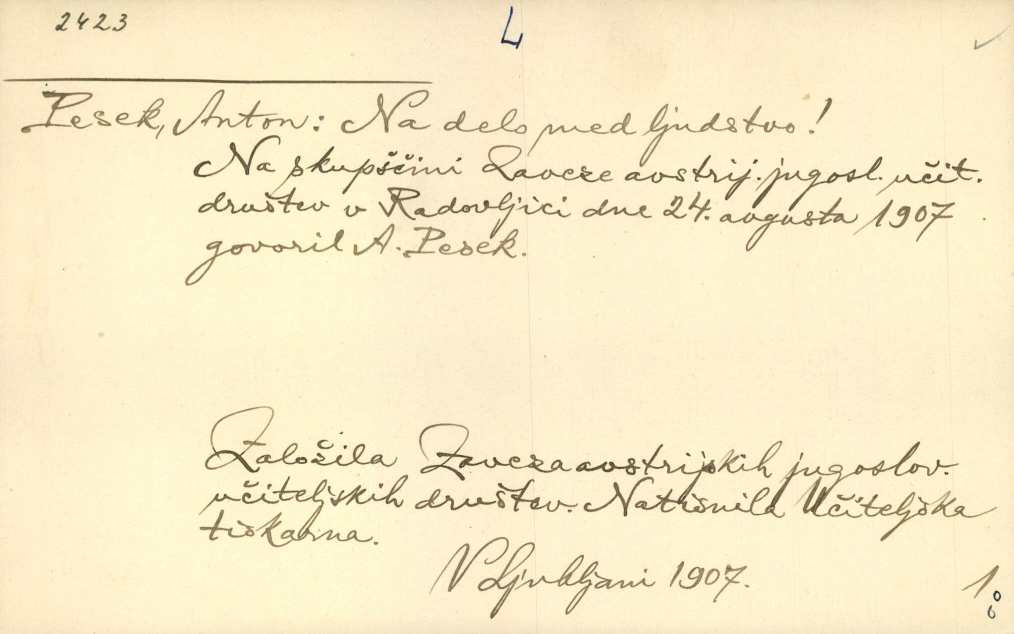 2423
L
Pesek, Anton: Na delo med ljudstvo!
Na skupščini Zaveze avstrij. jugosl. učit.
društev v Radovljici dne 24. avgusta 1907
govoril A. Pesek.
Založila Zaveza avstrijskih jugoslov.
učiteljskih društev. Natisnila Učiteljska
tiskarna.
V Ljubljani 1907.
1